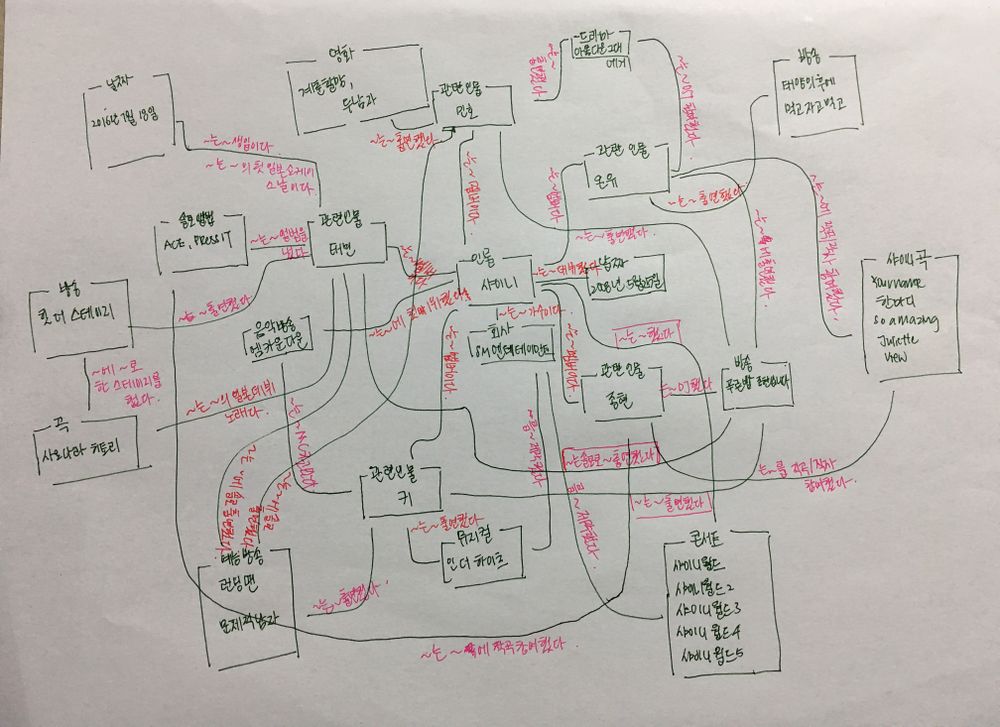 날짜
2016년 7월 18일
영화
계춘할망,
두남자
관련인물
민호
드라마
아름다운 그대
에게
방송
태양의 후예
먹고자고먹고
관련 인물
온유
솔로앨범
ACE, PRESS IT
관련인물
태민
인물
샤이니
날짜
2008년 5월 25일
방송
힛 더 스테이지
음악방송
엠카운트다운
회사
SM엔터테인먼트
관련 인물
종현
방송
푸른밤 종현입니다
샤이니 곡
Your name
한마디
So amazing
Juliette
View
곡
사요나라 히토리
관련인물
키
뮤지컬
인 더 하이츠
예능방송
런닝맨
문제적남자
콘서트
샤이니월드
샤이니월드2
샤이니월드3
샤이니월드4
샤이니월드5
~는 ~생임이다
~는 ~의 첫 일본쇼케이
스날이다.
~는 ~앨범을
냈다
~는 ~출연했다
~에 ~로
한 스테이지를
했다.
~는 ~의 일본데뷔
노래다.
~는 ~출연했다
~는 ~멤버이다.
~는 ~멤버이다.
~는 ~출연했다.
~는 ~출연했다
~는 ~데뷔했다
~는 ~가수이다.
~는 ~멤버이다.
~는 ~멤버이다.
~는 ~했다
~는 ~DJ했다
~는 솔로로 ~출연했다
~는 ~출연했다
~는 ~출연했다
~는 ~출연했다.
~는 ~를 작곡/작사
참여했다.
~는 ~곡에 작곡참여했다.